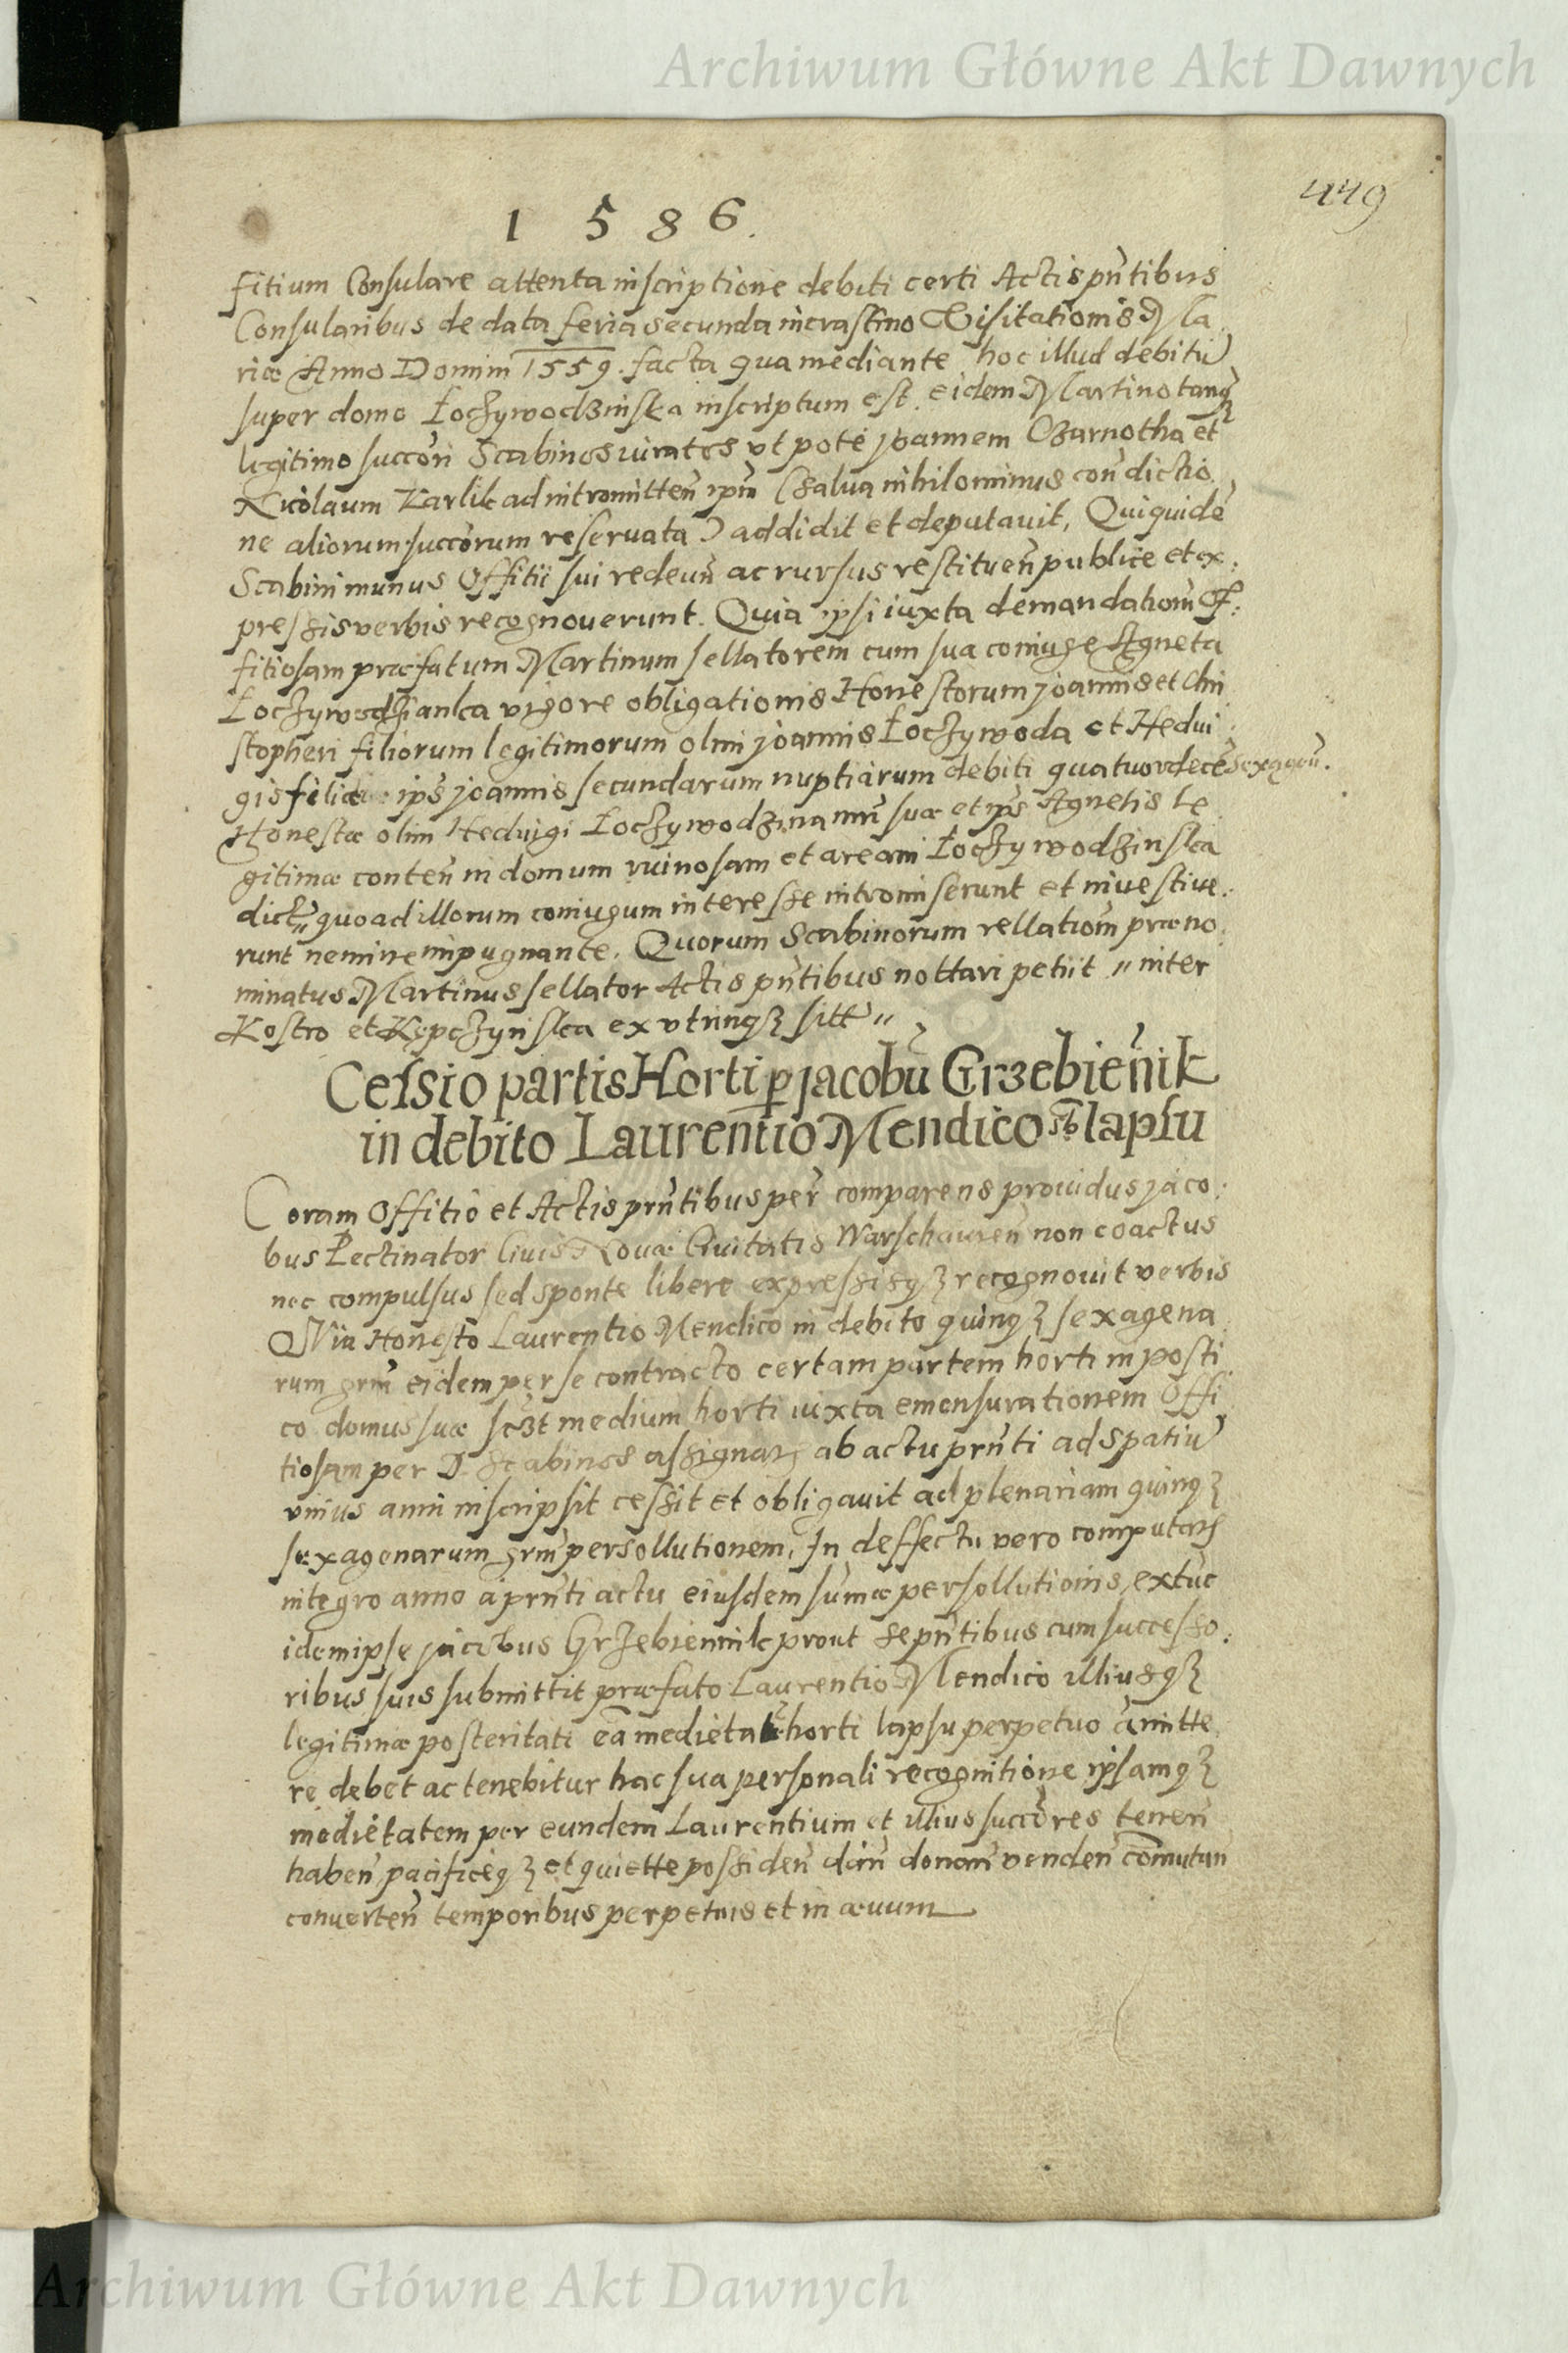 Archiwum Główne Akt Dawnych
449
1 5 8 6.
fitium Consulare attenta inscriptione debiti certi Actis pñtibus
Consularibus de data feria secunda in crastino Visitationis Ma
riæ Anno Domini 1559. facta qua mediante hoc illud debitũ
super domo Łoczywodzinska inscriptum est. eidem Martino tanqȝ
legitimo succori Scabinos iuratos vt poté joannem Czarnotha et
Nicolaum Karlik ad intromitteñ ipm̃ (salua nihilominus condictio
ne aliorum succorum reseruata) addidit et deputauit, Qui quidẽ
Scabini munus Offitii sui redeuñ ac rursus restitueñ publice et ex:
pressis verbis recognouerunt. Quia ipsi iuxta demandationẽ Of:
fitiosam præfatum Martinum sellatorem cum sua coniuge Agneta
Łoczywodzianka vigore obligationis Honestorum joannis et Chri
stopheri filiorum legitimorum olim joannis Łoczywoda et Hedui:
gis filiæ ips̃ joannis secundarum nuptiarum debiti quatuordecẽ sexageñ.
Honestæ olim Heduigi Łoczywodzina mr̃i suæ et ips̃ Agnetis le
gitimæ conteñ in domum ruinosam et aream Łoczywodzinska
dict„ quoad illorum coniugum interesse intromiserunt et inuestiue:
runt nemine impugnante. Quorum Scabinorum rellationẽ præno:
minatus Martinus sellator Actis pñtibus nottari petiit „ inter
Kostro et Kępczynska ex vtrinqȝ sitt„
Cessio partis Horti ꝑ jacobũ Grzebieñik
in debito Laurentio Mendico sb lapsu
Coram Offitio et Actis prñtibus per̃ comparens prouidus jaco:
bus Pectinator Ciuis Nouæ Ciuitatis Warschauieñ non coactus
nec compulsus sed sponte libere expressisqȝ recognouit verbis
Quia Honesto Laurentio Mendico in debito quinqȝ sexagena
rum grm̃ eidem per se contracto certam partem horti in posti
co domus suæ scȝt medium horti iuxta emensurationem Offi
tiosam per D. Scabinos assignat ab actu prñti ad spatiũ
vnius anni inscripsit cessit et obligauit ad plenariam quinqȝ
sexagenarum grm̃ persollutionem, In deffectu vero computatȝ
integro anno á prñti actu eiusdem sum̃æ persollutionis, extũc
idem ipse jacobus Grzebiennik prout se pñtibus cum successo:
ribus suis submittit præfato Laurentio Mendico illiusqȝ
legitimæ posteritati eã medietatẽ horti lapsu perpetuo amitte
re debet ac tenebitur hac sua personali recognitione ipsamqȝ
medietatem per eundem Laurentium et illius succores teneñ
habeñ pacificéqȝ et quiette possideñ dañ donañ vendeñ com̃utan
conuerteñ temporibus perpetuis et in æuum
Archiwum Główne Akt Dawnych